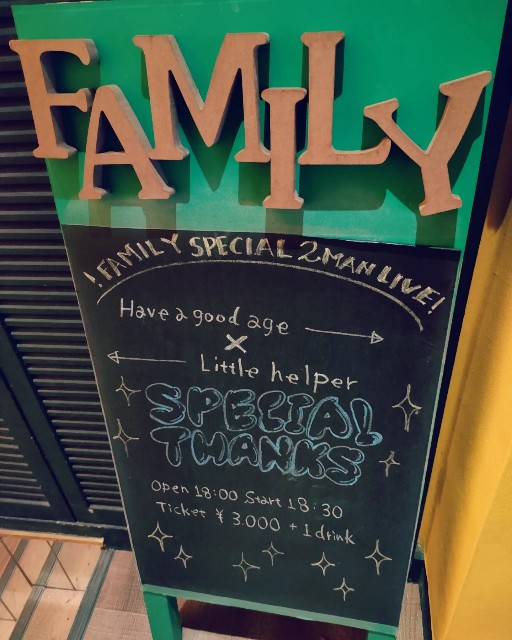 FAMILY
!FAMILY SPECIAL 2MAN LIVE!
Have a good age →
×
← Little helper
SPECIAL
THANKS
Open 18:00 Start 18:30
Ticket ¥ 3.000 + 1drink